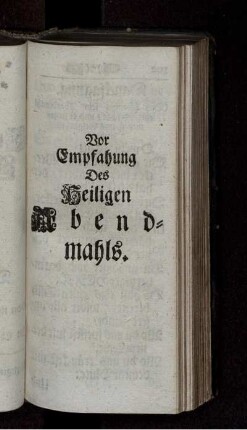 Vor
Empfahung
Des
Heiligen
Abend-
mahls.